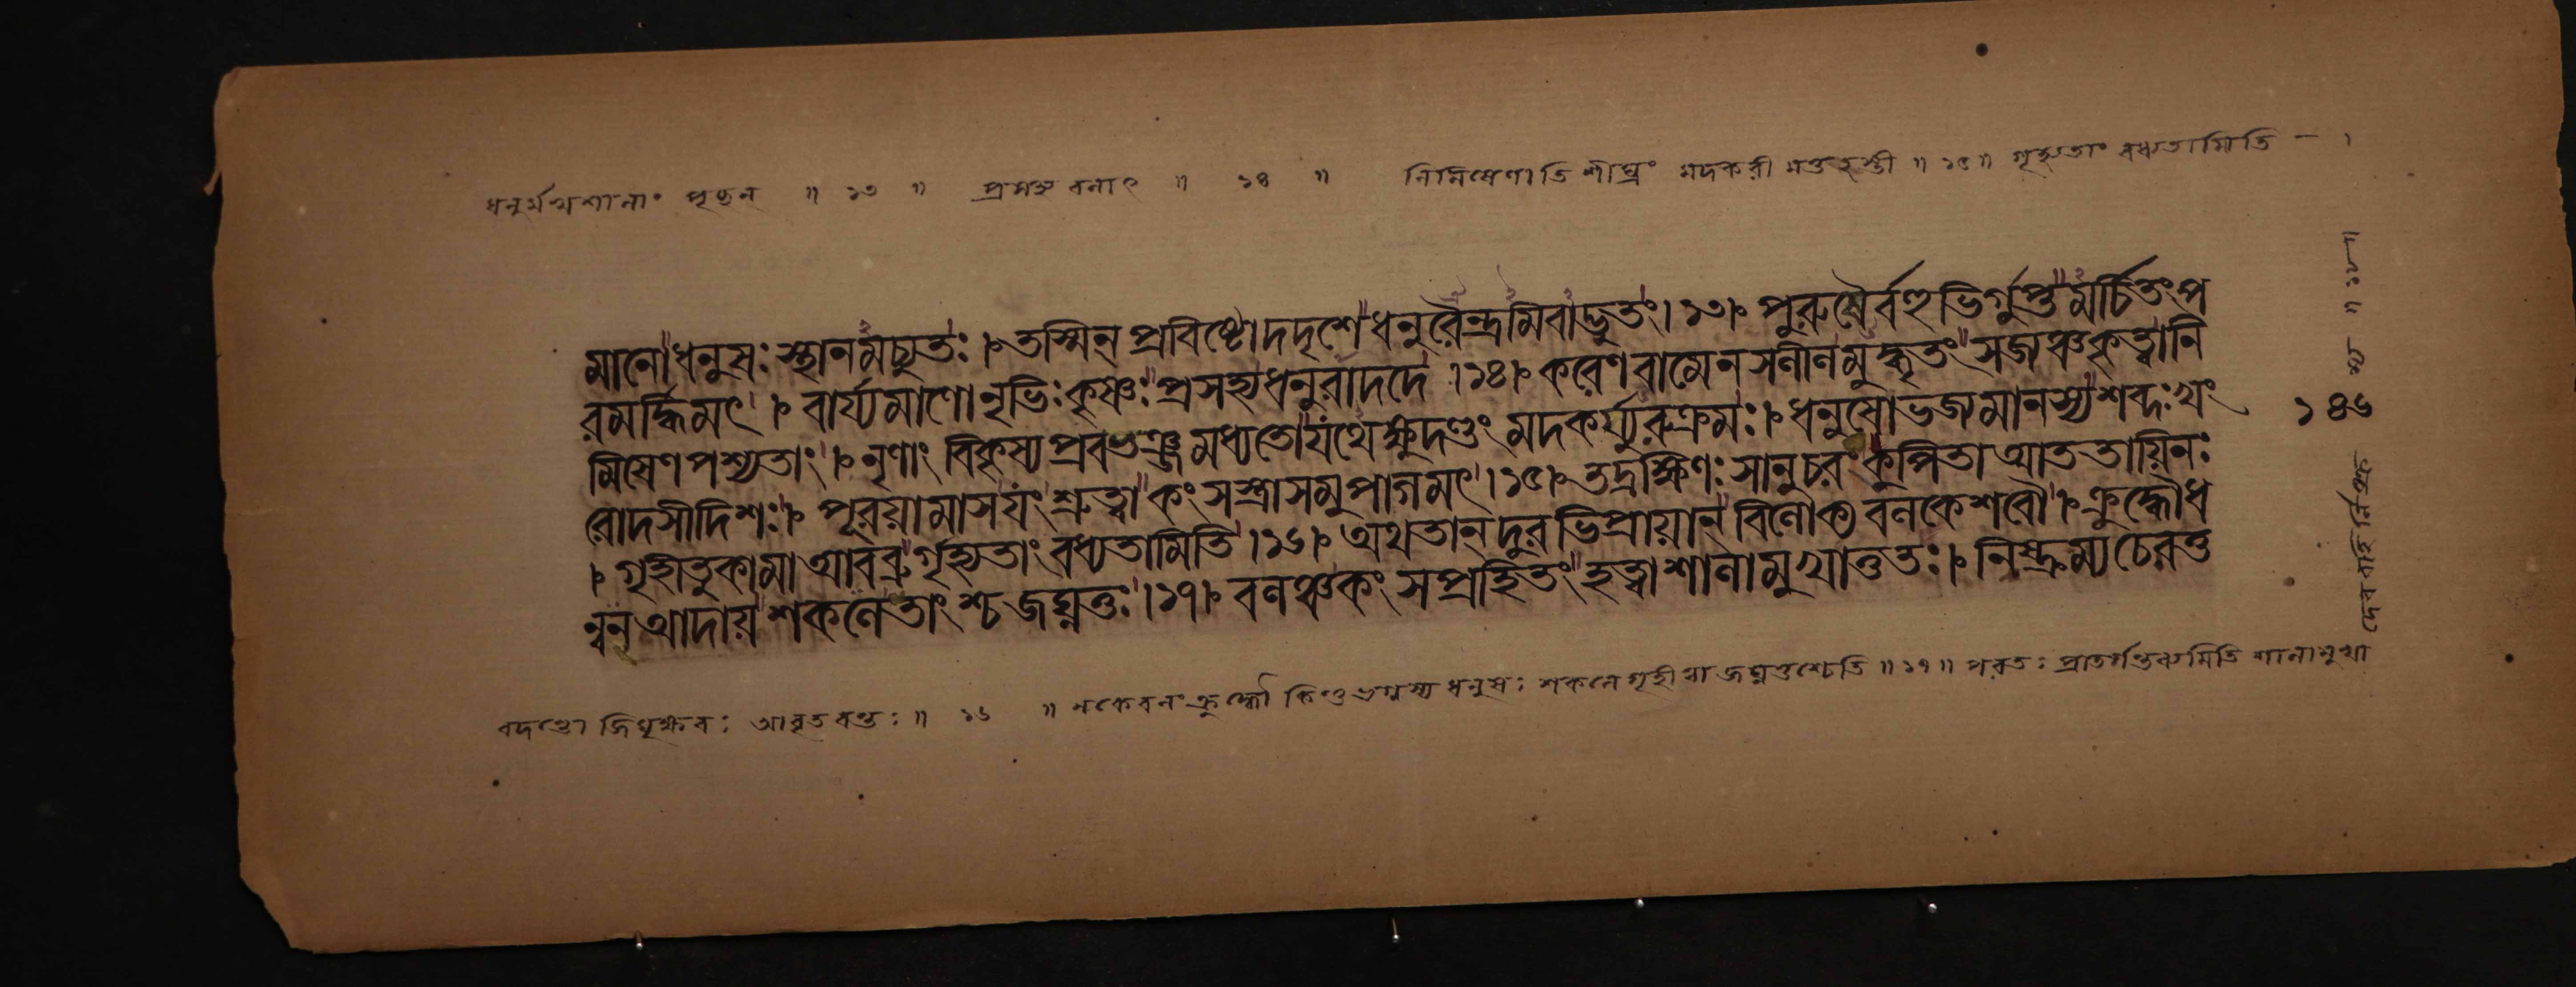 ধনুর্মখশানাং পৃচ্ছন ॥ ১৩ ॥ প্রসহ্য বলাৎ ॥ ১৪ ॥ নিমিষেণাতি শীঘ্রং মদকরী মত্তহস্তী ॥ ১৫ ॥ গৃহ্যতাং বধ্যতামিতি — ।
মানো ধনুষঃ স্থানমচ্যুতঃ । তস্মিন্ প্রবিষ্টো দদৃশে ধনুরৈন্দ্রমিবাদ্ভুতং । ১৩ । পুরুষৈর্বহুভির্গুপ্তমর্চিতং প
রমর্দ্ধিমৎ । বার্য্যমাণো নৃভিঃ কৃষ্ণঃ প্রসহ্য ধনুরাদদে । ১৪ । করেণ বামেন সলীলমুদ্ধৃতং সজ্যঞ্চ কৃত্বা নি
মিষেণ পশ্যতাং । নৃণাং বিকৃষ্য প্রবভঞ্জ মধ্যতো যথেক্ষুদণ্ডং মদকর্য্যুরুক্রমঃ । ধনুষো ভজ্যমানস্য শব্দঃ খং
রোদসী দিশঃ । পূরয়ামাস যং শ্রুত্বা কংসস্ত্রাসমুপাগমৎ । ১৫ । তদ্রক্ষিণঃ সানুচরং কুপিতা আততায়িনঃ
। গৃহীতুকামা আবব্রুর্গৃহ্যতাং বধ্যতামিতি । ১৬ । অথ তান্ দুরভিপ্রায়ান্ বিলোক্য বলকেশবৌ । ক্রুদ্ধৌ ধ
ন্বন্ আদায় শকলে তাংশ্চ জঘ্নতুঃ । ১৭ । বলঞ্চ কংসপ্রহিতং হত্বা শালামুখাত্ততঃ । নিষ্ক্রম্য চেরতু
বদন্তো জিঘৃক্ষবঃ আবৃতবন্তঃ ॥ ১৬ ॥ ন কেবলং ক্রুদ্ধৌ কিন্তু ভগ্নস্য ধনুষঃ শকলে গৃহীত্বা জঘ্নতুশ্চেতি ॥ ১৭ ॥ শালামুখা
১৪৬